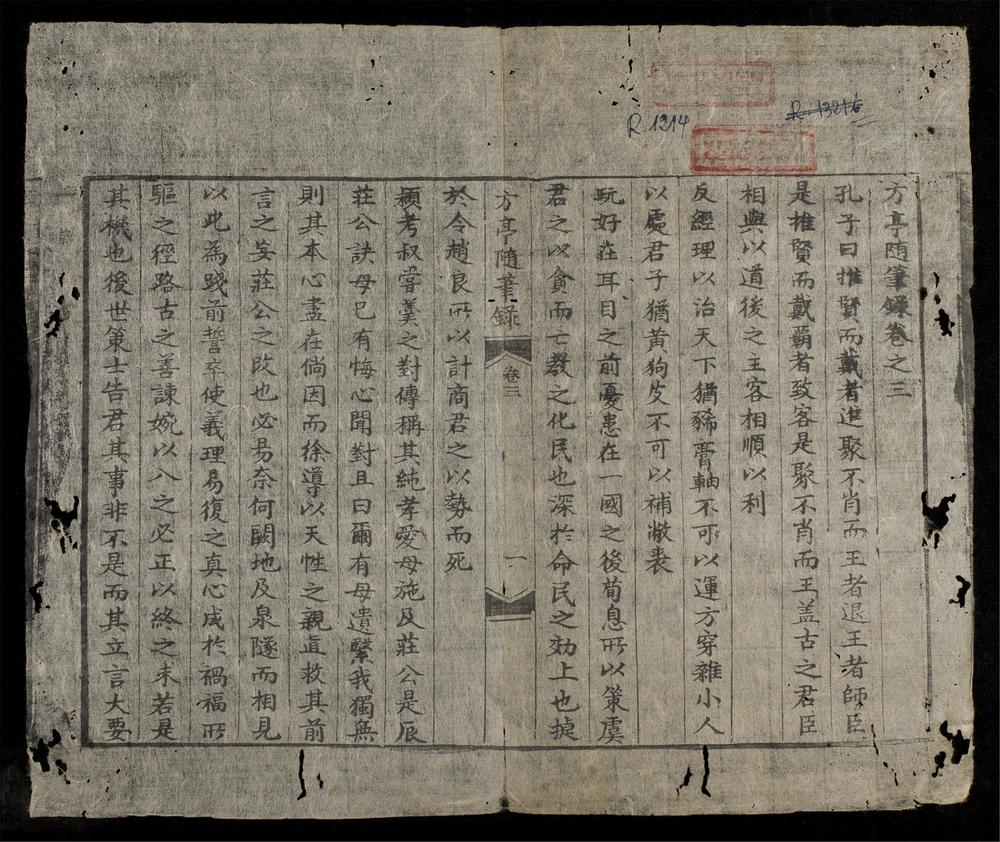 R.1214
R.13216
方亭隨筆錄卷之三
孔子曰推賢而戴者進聚不肖而王者退王者師臣
是推賢而戴霸者致客是聚不肖而王盖古之君臣
相與以道後之主客相順以利
反經理以治天下猶豨膏軸不可以運方穿雜小人
以處君子猶黃狗皮不可以補敝裘
玩好在耳目之前憂患在一國之後荀息所以策虞
君之以貪而亡教之化民也深於命民之効上也捷
方亭隨筆錄
卷三
一
於令趙良所以計商君之以勢而死
潁考叔嘗羹之對傳稱其純孝愛母施及莊公是辰
莊公訣母已有悔心聞對且曰爾有母遺繄我獨無
則其本心盡在倘因而徐導以天性之親直救其前
言之妄莊公之改也必易奈何闕地及泉隧而相見
以此為踐前誓卒使義理易復之真心成於禍福所
驅之徑路古之善諫婉以入之必正以終之未若是
其機也後世策士告君其事非不是而其立言大要